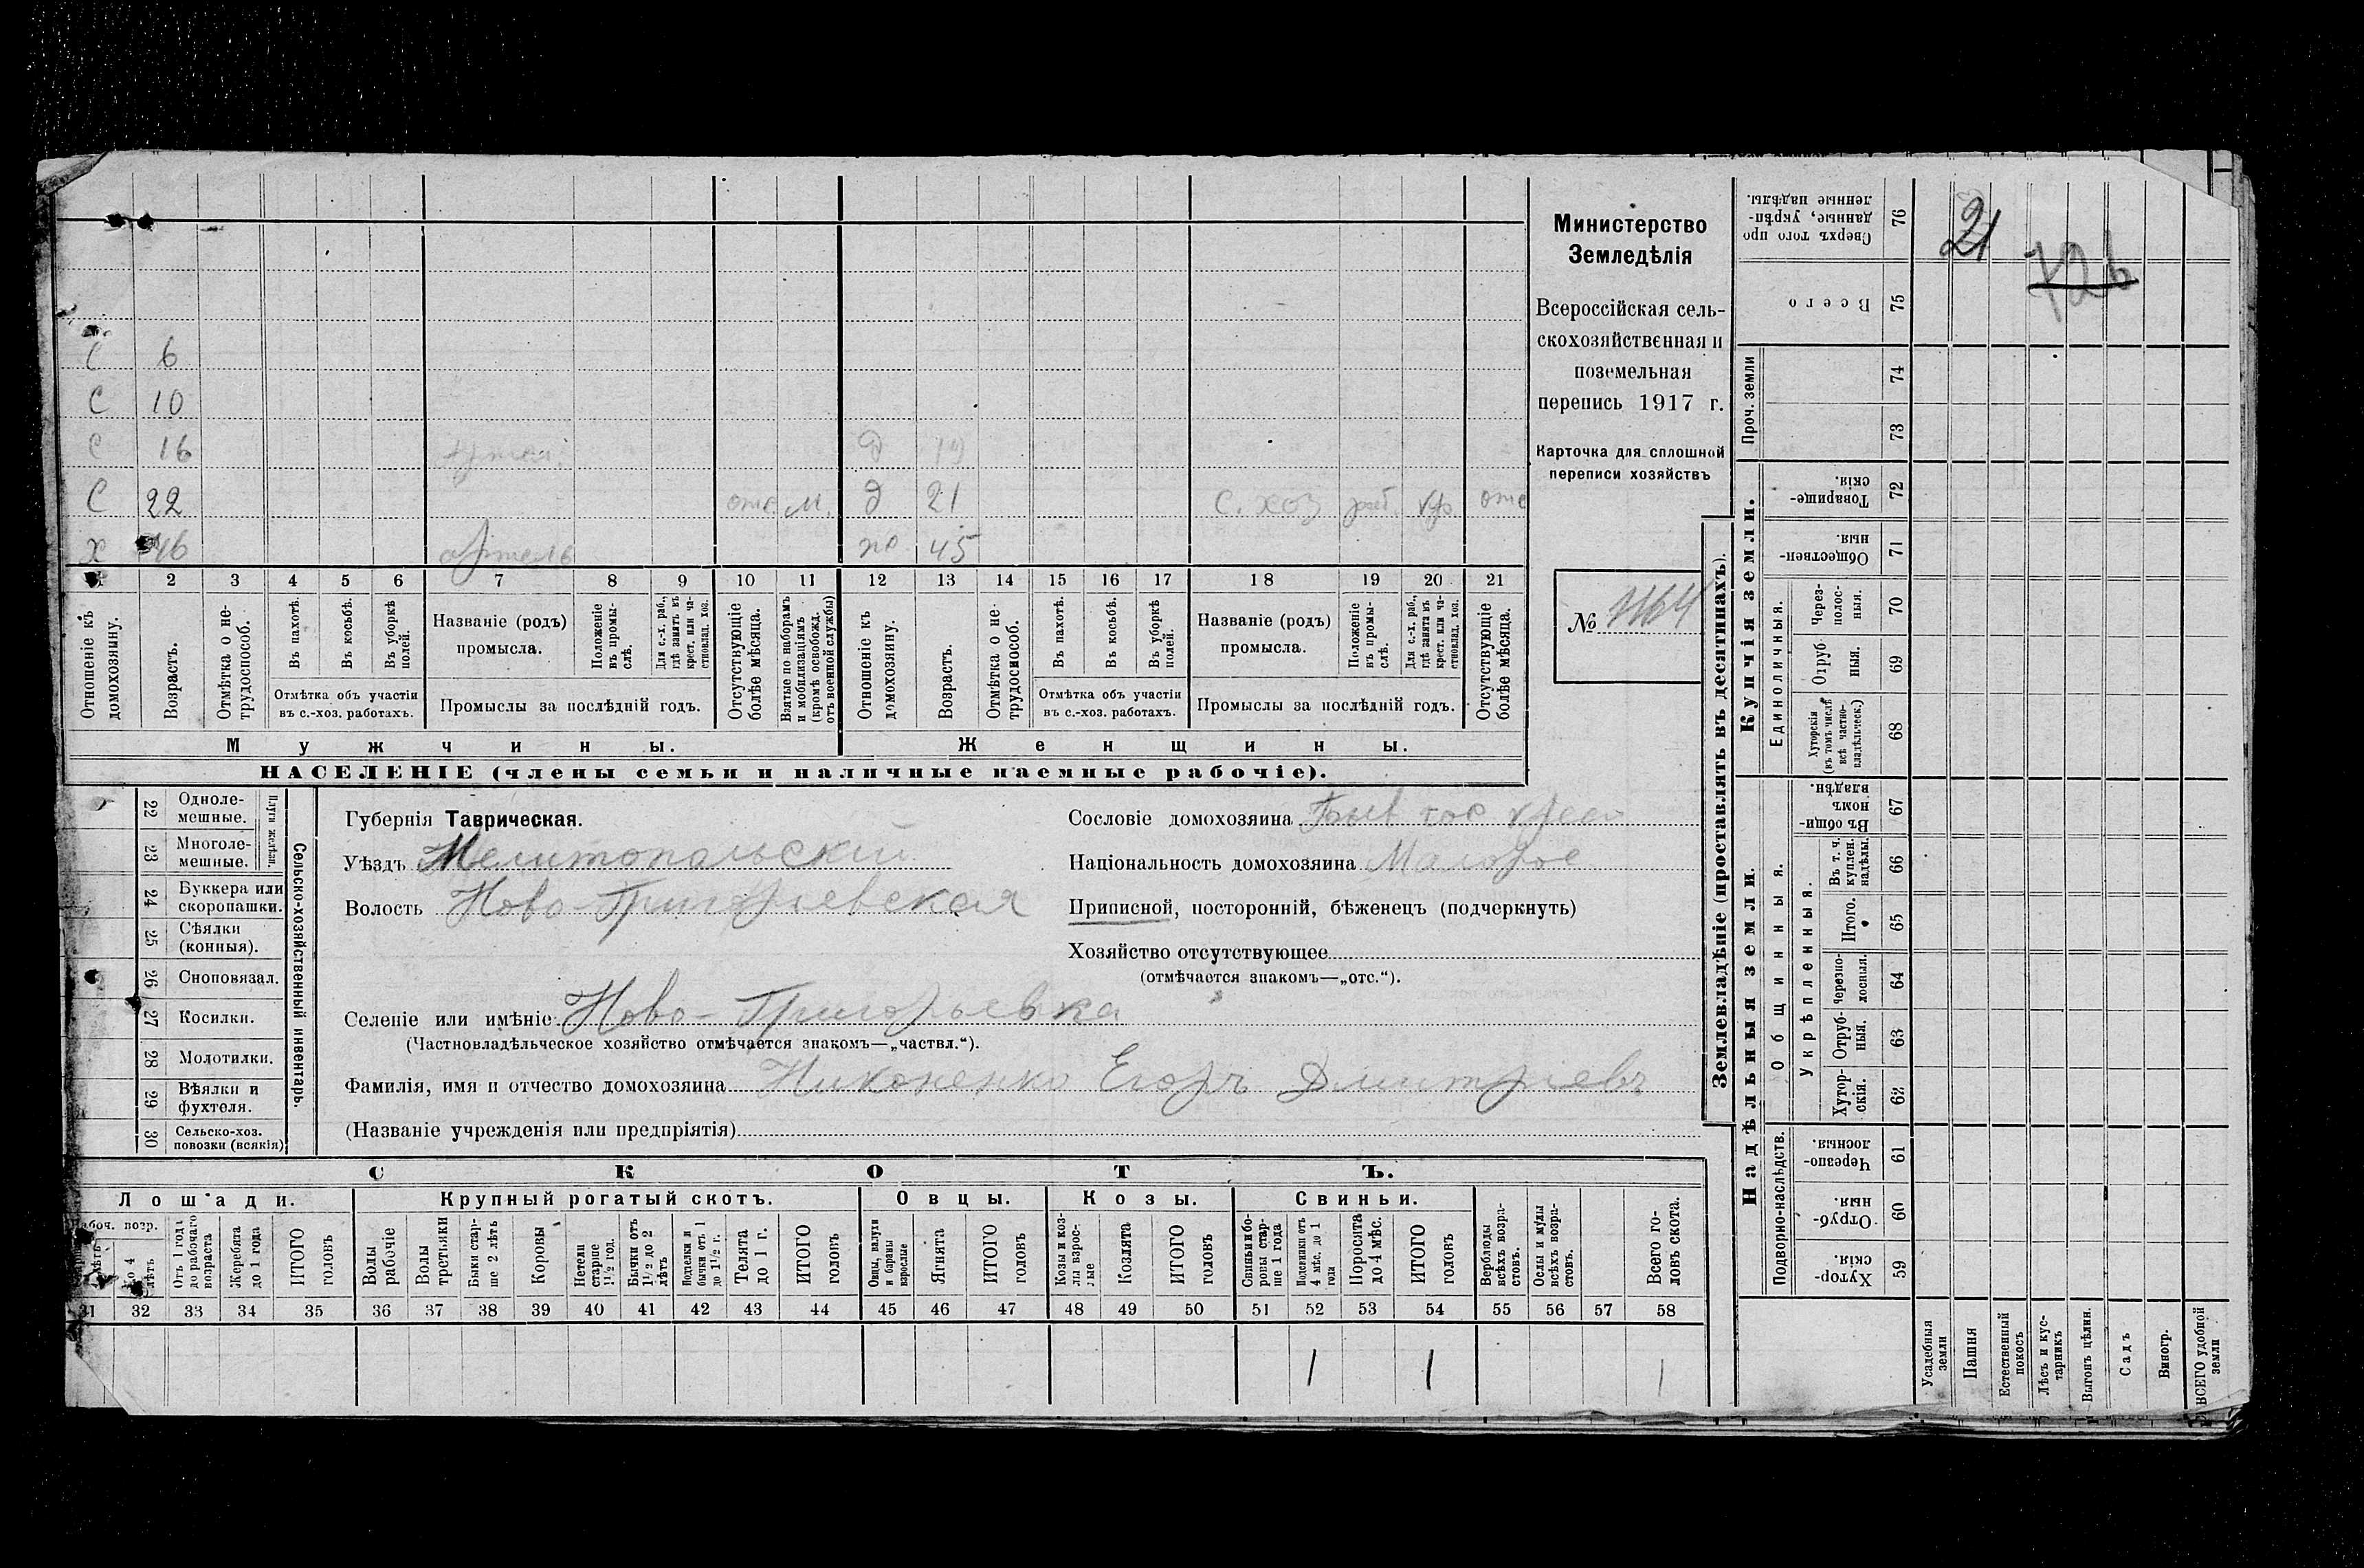 С 6
С 10
С 16 д 19
С 22 отс. м. д 21 с. хоз раб. кр. отс
Х 46 артель 45
2 3 4 5 6 7 8 9 10 11 12 13 14 15 16 17 18 19 20 21
Отношеніе къ домохозяину.
Возрастъ.
Отмѣтка о не-
трудоспособ.
Въ пахотѣ.
Въ косьбѣ.
Въ уборкѣ
полей.
Отмѣтка объ участіи
въ с.-хоз. работахъ.
Названіе (родъ)
промысла.
Положеніе
въ промы-
слѣ.
Для с.-х. раб.,
гдѣ занятъ въ
крест. или ча-
стновлад. хоз.
Промыслы за послѣдній годъ.
Отсутствующіе
болѣе мѣсяца.
Взятые по наборамъ
и мобилизаціямъ
(кромѣ освобожд.
отъ военной службы)
Отношеніе къ
домохозяину.
Возрастъ.
Отмѣтка о не-
трудоспособ.
Въ пахотѣ.
Въ косьбѣ.
Въ уборкѣ
полей.
Отмѣтка объ участіи
въ с.-хоз. работахъ.
Названіе (родъ)
промысла.
Положеніе
въ промы-
слѣ.
Для с.-х. раб.,
гдѣ занята въ
крест. или ча-
стновлад. хоз.
Промыслы за послѣдній годъ.
Отсутствующіе
болѣе мѣсяца.
Мужчины. Женщины.
НАСЕЛЕНІЕ (члены семьи и наличные наемные рабочіе).
Министерство
Земледѣлія
Всероссійская сель-
скохозяйственная и
поземельная
перепись 1917 г.
Карточка для сплошной
переписи хозяйствъ
№
22 Одноле-
мешные.
23 Многоле-
мешные.
Плуги желѣзн.
24 Буккера или
скоропашки.
25 Сѣялки
(конныя).
26 Сноповязал.
27 Косилки.
28 Молотилки.
29 Вѣялки и
фухтеля.
30 Сельско-хоз.
повозки (всякія)
Сельско-хозяйственный инвентарь.
Губернія Таврическая.
Уѣздъ Мелитопольскій
Волость Ново-Григорьевская
Селеніе или имѣніе Ново-Григорьевка
(Частновладѣльческое хозяйство отмѣчается знакомъ—„частвл.“).
Фамилія, имя и отчество домохозяина Никоненко Егоръ Дмитріевъ
(Названіе учрежденія или предпріятія)
Сословіе домохозяина Быв гос крест
Національность домохозяина Малорос
Приписной, посторонній, бѣженецъ (подчеркнуть)
Хозяйство отсутствующее
(отмѣчается знакомъ—„отс.“).
СКОТЪ.
Лошади. Крупный рогатый скотъ. Овцы. Козы. Свиньи.
до 4
лѣтъ
Отъ 1 года
до рабочаго
возраста
Жеребята
до 1 года
ИТОГО
головъ
Волы
рабочіе
Волы
третьяки
Быки стар-
ше 2 лѣтъ
Коровы
Нетели
старше
1½ год.
Бычки отъ
1½ до 2
лѣтъ
Подтелки и
бычки отъ 1
до 1½ г.
Телята
до 1 г.
ИТОГО
головъ
Овцы, валухи
и бараны
взрослые
Ягнята
ИТОГО
головъ
Козы и коз-
лы взрос-
лые
Козлята
ИТОГО
головъ
Свиньи и бо-
ровы стар-
ше 1 года
Подсвинки отъ
4 мѣс. до 1
года
Поросята
до 4 мѣс.
ИТОГО
головъ
Верблюды
всѣхъ возра-
стовъ.
Ослы и мулы
всѣхъ возра-
стовъ.
Всего го-
ловъ скота.
31 32 33 34 35 36 37 38 39 40 41 42 43 44 45 46 47 48 49 50 51 52 53 54 55 56 57 58
1 1 1
Землевладѣніе (проставлять въ десятинахъ).
Надѣльныя земли. Купчія земли. Проч. земли
Подворно-наслѣдств.
Общинныя.
Укрѣпленныя.
Единоличныя.
76 Сверхъ того про
данные, укрѣп-
ленные надѣлы.
21
726
75 Всего
74
73
72 Товарище-
скія.
71 Обществен-
ныя.
70 Черес-
полос-
ныя.
69 Отруб
ныя.
68 Хуторскія
(въ томъ числѣ
всѣ частно-
владѣльческ.)
67 Въ общи-
номъ
владѣн.
66 Въ т. ч.
куплен.
надѣлы.
65 Итого.
64 Черезпо-
лосныя.
63 Отруб-
ныя.
62 Хутор-
скія.
61 Черезпо-
лосныя.
60 Отруб-
ныя.
59 Хутор-
скія.
Усадебныя
земли
Пашня
Естественный
покосъ
Лѣсъ и кус-
тарникъ
Выгонъ цѣлин.
Садъ
Виногр.
ВСЕГО удобной
земли